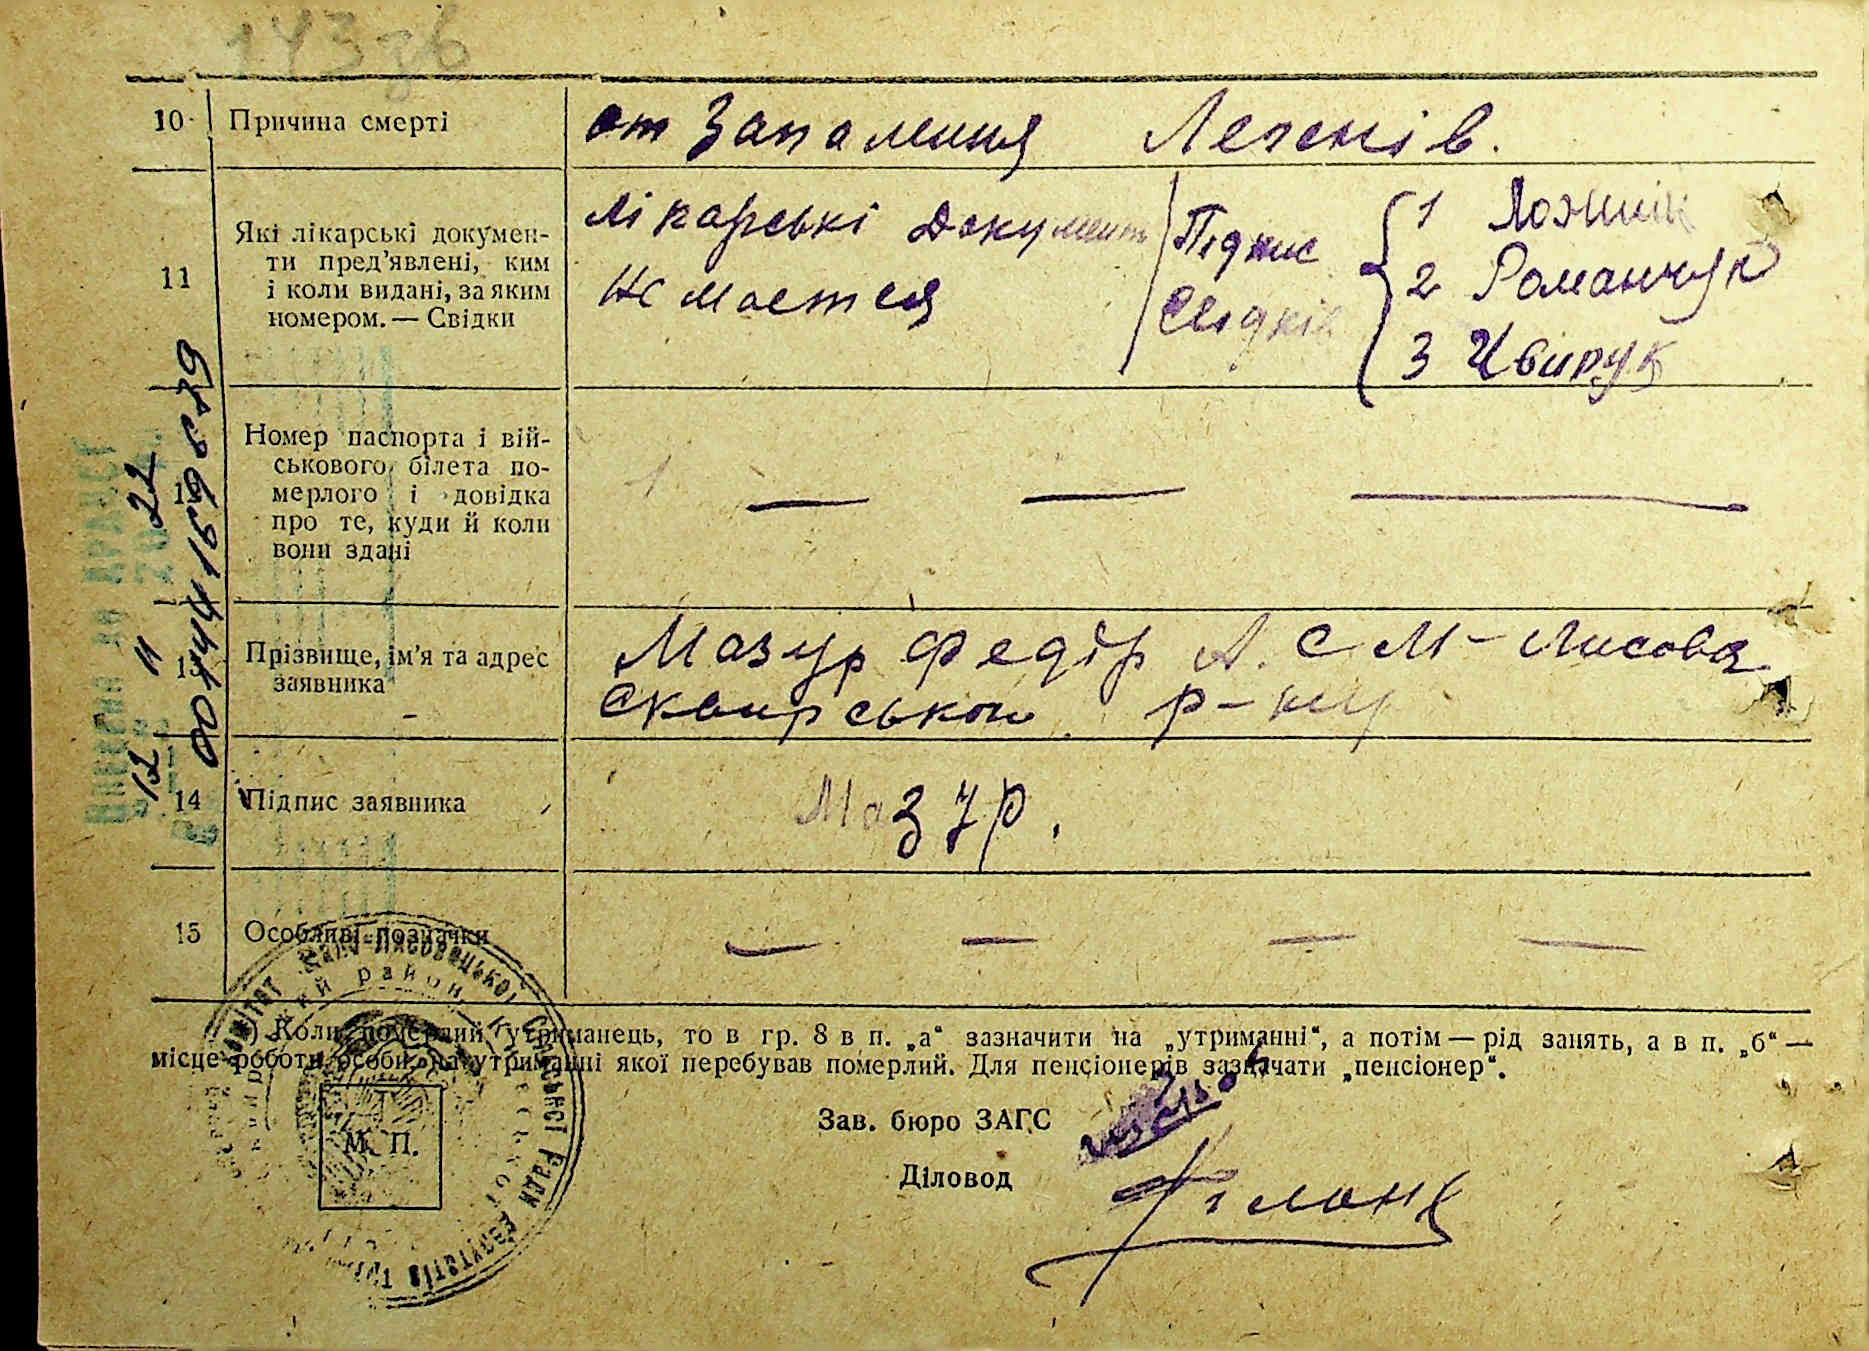 143зв
10 Причина смерті
от Запалення Легенів.
11 Які лікарські докумен-
ти пред’явлені, ким
і коли видані, за яким
номером. — Свідки
Лікарські Документи
Не мается
Підпис
Свідків
1 Ложник
2 Романчук
3 Цвирук
Номер паспорта і вій-
ськового білета по-
мерлого і довідка
про те, куди й коли
вони здані
— — —
Прізвище, ім’я та адрес
заявника
Мазур Федір А. с М- Лисова
Сквирського р-ну
14 Підпис заявника
Мазур.
15 Особливі позначки
— — — —
Коли померлий утриманець, то в гр. 8 в п. „а“ зазначити на „утриманні“, а потім — рід занять, а в п. „б“ —
місце роботи особи, на утриманні якої перебував померлий. Для пенсіонерів зазначати „пенсіонер“.
Зав. бюро ЗАГС
Діловод
М. П.
12 11 22
00444169679